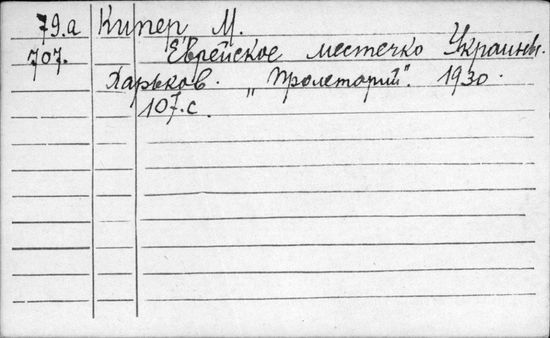 79.а Кипер, М.
707. Еврейское местечко Украины.
Харьков. "Пролетарий". 1930.
107.с.